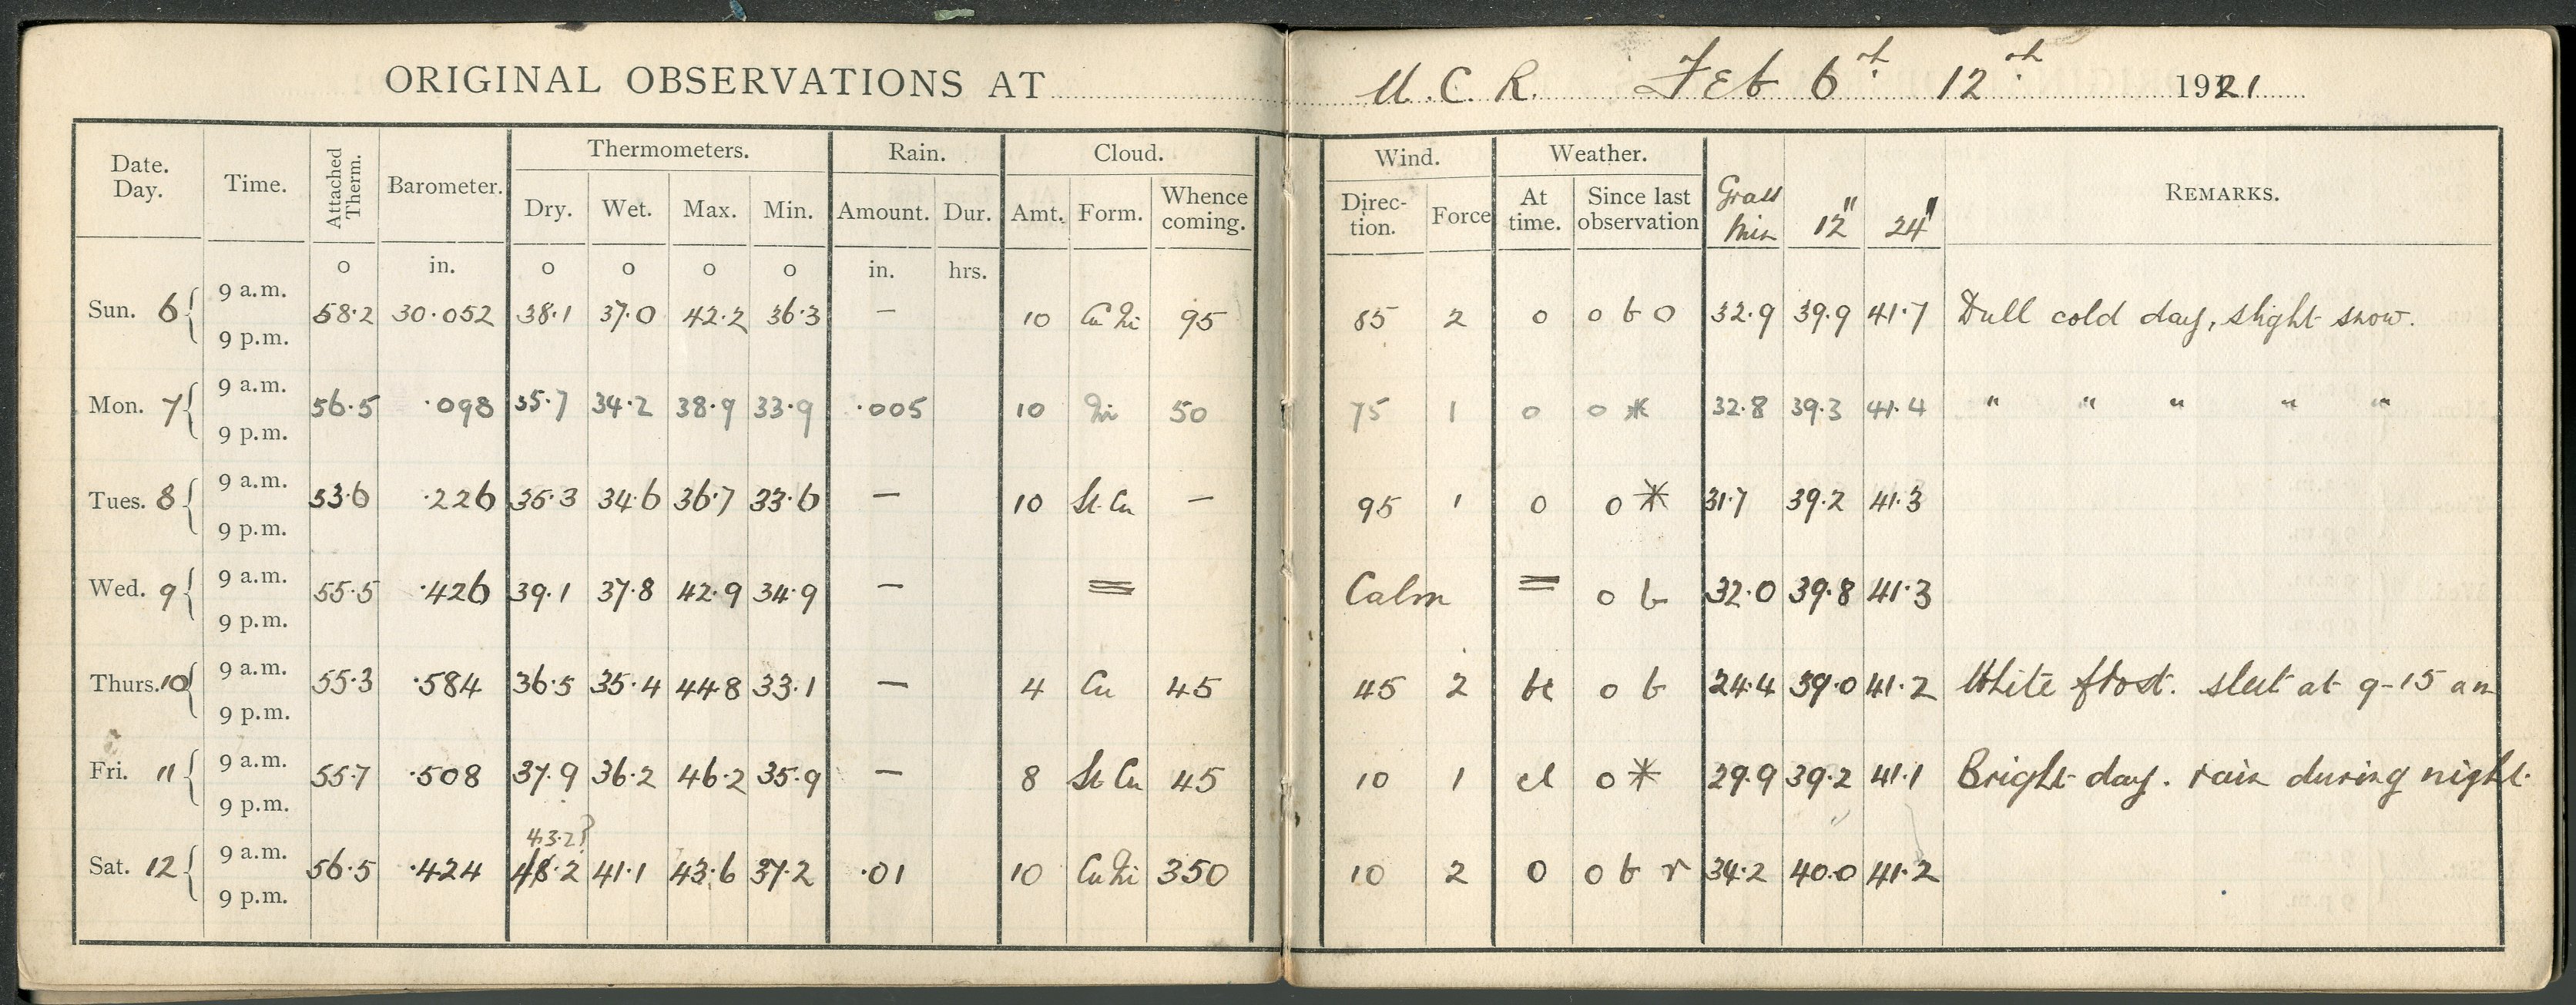 ORIGINAL OBSERVATIONS AT U.C.R. Feb 6th 12th 1921
Date. Day. Time. Attached Therm. Barometer. Thermometers. Rain. Cloud. Wind. Weather. Grass Min 12" 24" REMARKS.
Dry. Wet. Max. Min. Amount. Dur. Amt. Form. Whence coming. Direc-tion. Force At time. Since last observation
o in. o o o o in. hrs.
9 a.m.
Sun. 6 58.2 30.052 38.1 37.0 42.2 36.3 — 10 Cu Ni 95 85 2 o o b o 32.9 39.9 41.7 Dull cold day, slight snow.
9 p.m.
9 a.m.
Mon. 7 56.5 .098 35.7 34.2 38.9 33.9 .005 10 Ni 50 75 1 o o * 32.8 39.3 41.4 " " " " "
9 p.m.
9 a.m.
Tues. 8 53.6 .226 35.3 34.6 36.7 33.6 — 10 St. Cu — 95 1 o o * 31.7 39.2 41.3
9 p.m.
9 a.m.
Wed. 9 55.5 .426 39.1 37.8 42.9 34.9 — ≡ Calm = o b 32.0 39.8 41.3
9 p.m.
9 a.m.
Thurs. 10 55.3 .584 36.5 35.4 44.8 33.1 — 4 Cu 45 45 2 bc o b 24.4 39.0 41.2 White frost. sleet at 9-15 am
9 p.m.
9 a.m.
Fri. 11 55.7 .508 37.9 36.2 46.2 35.9 — 8 St Cu 45 10 1 o * 29.9 39.2 41.1 Bright day. rain during night.
9 p.m.
43.2?
9 a.m.
Sat. 12 56.5 .424 48.2 41.1 43.6 37.2 .01 10 Cu Ni 350 10 2 o o b r 34.2 40.0 41.2
9 p.m.